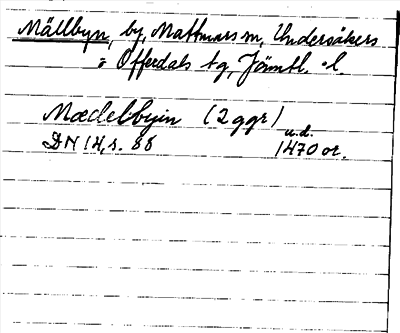 Mällbyn, by, Mattmars sn, Undersåkers
o Offerdals tg, Jämtl. l.
Mædelbyin (2 ggr)
DN 14, s. 88 u.d.
1470 or.